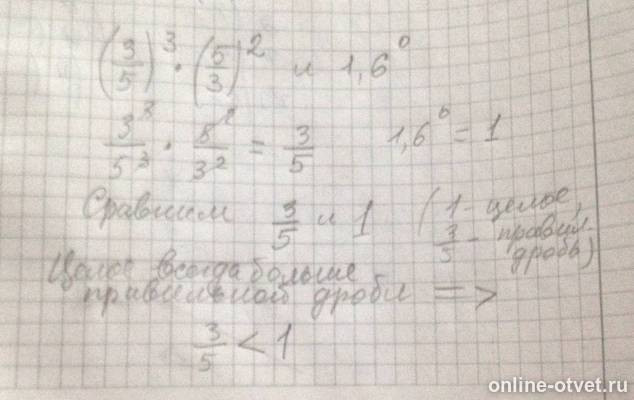 (3/5)³ · (5/3)² и 1,6⁰
3³/5³ · 5²/3² = 3/5 1,6⁰ = 1
Сравним 3/5 и 1 (1 - целое,
3/5 - правил.
дробь)
Целое всегда больше
правильной дроби =>
3/5 < 1
online-otvet.ru